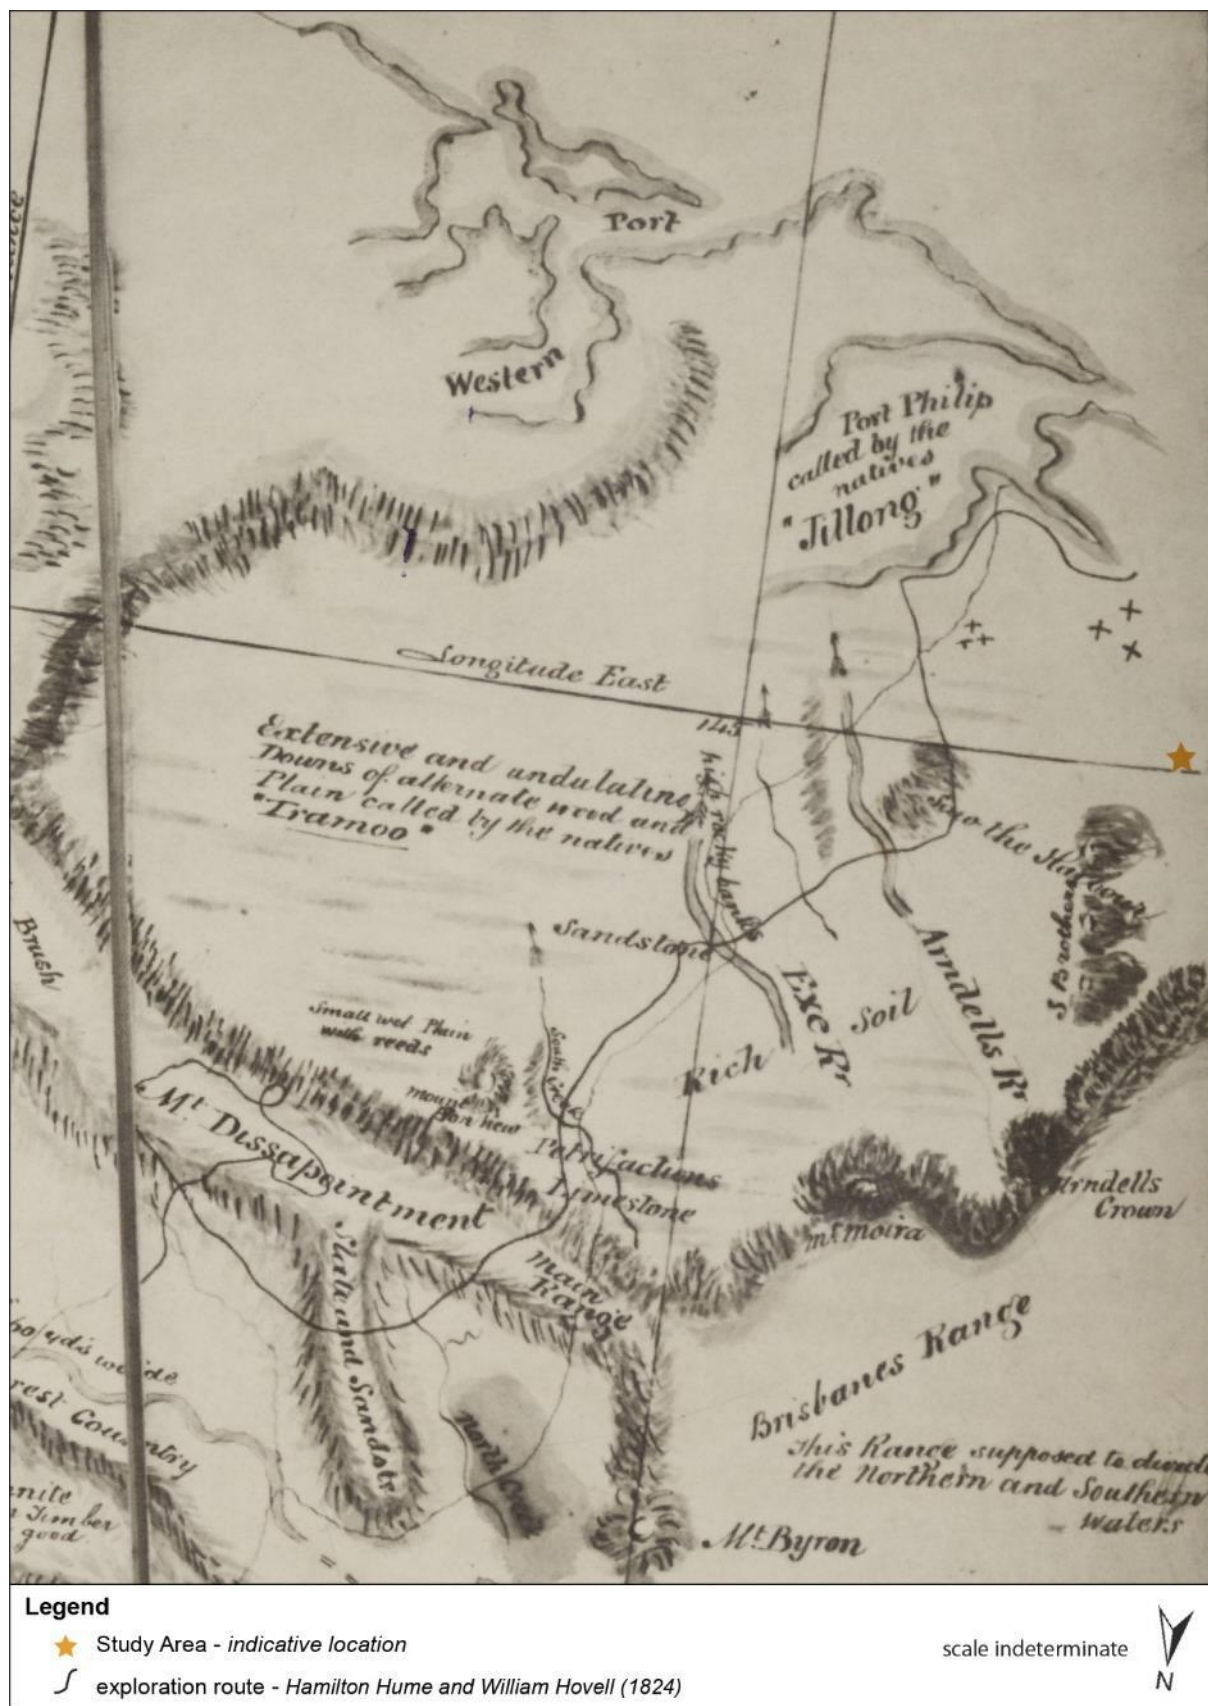 Port
Western
Port Philip
called by the
natives
"Jillong"
Longitude East
145
Extensive and undulating
Downs of alternate wood and
Plain called by the natives
"Iramoo"
high rocky banks
the Harbour
3 Brothers
Brush
Sandstone
Exe Rr
Arndells Rr
Rich Soil
Small wet Plain
with reeds
South Creek
mount
Bon view
Petrifactions
Limestone
Mt Dissapointment
main
Range
mt moira
Arndells
Crown
Slate and Sandstone
Brisbanes Range
This Range supposed to divide
the Northern and Southern
waters
North Creek
yds wide
rest Country
nite
Timber
good
Mt Byron
Legend
Study Area - indicative location
exploration route - Hamilton Hume and William Hovell (1824)
scale indeterminate
N